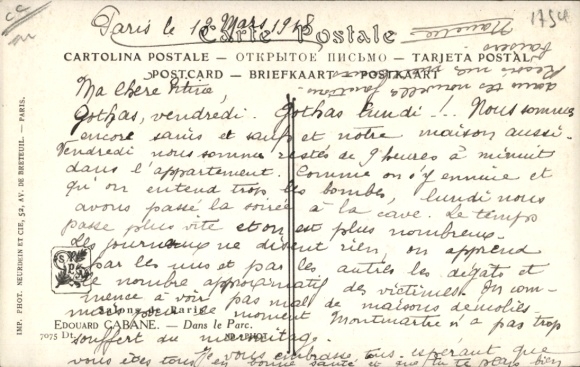 1754
Paris le 12 Mars 1918
Carte Postale
CARTOLINA POSTALE — ОТКРЫТОЕ ПИСЬМО — TARJETA POSTAL
POSTCARD — BRIEFKAART — POSTKAART
Ma chère
Gothas, vendredi. Gothas lundi !.. Nous sommes
encore sains et saufs et notre maison aussi.
Vendredi nous sommes restés de 9 heures à minuit
dans l'appartement. Comme on s'y ennuie et
qu'on entend trop les bombes, lundi nous
avons passé la soirée à la cave. Le temps
passe plus vite et on est plus nombreux.
Les journaux ne disent rien, on apprend
par les uns et par les autres les dégâts et
le nombre approximatif des victimes. On com-
mence à voir pas mal de maisons démolies.
Salons de Paris
mais pour le moment Montmartre n'a pas trop
EDOUARD CABANE. — Dans le Parc.
souffert du
7075 DP.
Je vous embrasse tous espérant que
vous êtes tous en bonne santé et que tu te plais bien
dans tes nouvelles fonctions.
Reçois mes
baisers
IMP. PHOT. NEURDEIN ET CIE, 52, AV. DE BRETEUIL. — PARIS.